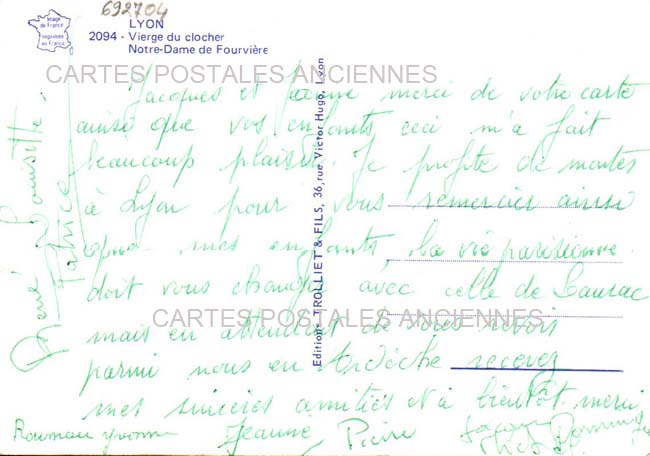 692704
Image de France
Imprimée en France
LYON
2094 - Vierge du clocher
Notre-Dame de Fourvière
CARTES POSTALES ANCIENNES
Jacques et Jeanne merci de votre carte
ainsi que vos enfants ceci m'a fait
beaucoup plaisir. Je profite de montes
à Lyon pour vous remercier ainsi
que mes enfants, la vie parisienne
doit vous changer avec celle de
CARTES POSTALES ANCIENNES
mais en attendant de vous revoir
parmi nous en Ardèche recevez
mes sincères amitiés et à bientôt merci
Yvonne Jeanne Pierre
René Louisette
Patrice
Edition TROLLIET & FILS, 36, rue Victor Hugo, Lyon